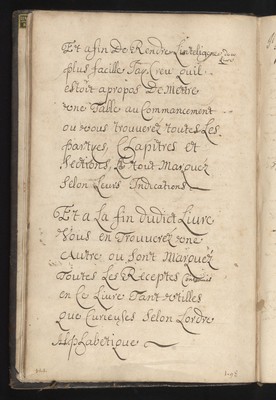 Et afin de Rendre Lintelligence du Livre
plus facille Jay Creu quil
estoit apropos De Mettre
une Table au Commancement
ou vous trouverez toutes Les
partyes, Chapitres et
Sections, Le tout Marquez
Selon Leurs Indications
Et a La fin dudict Livre
Vous en Trouverez une
Autre ou sont Marquez
Toutes Les Receptes
en Ce Livre Tant utilles
que Curieuses Selon Lordre
Alphabetique